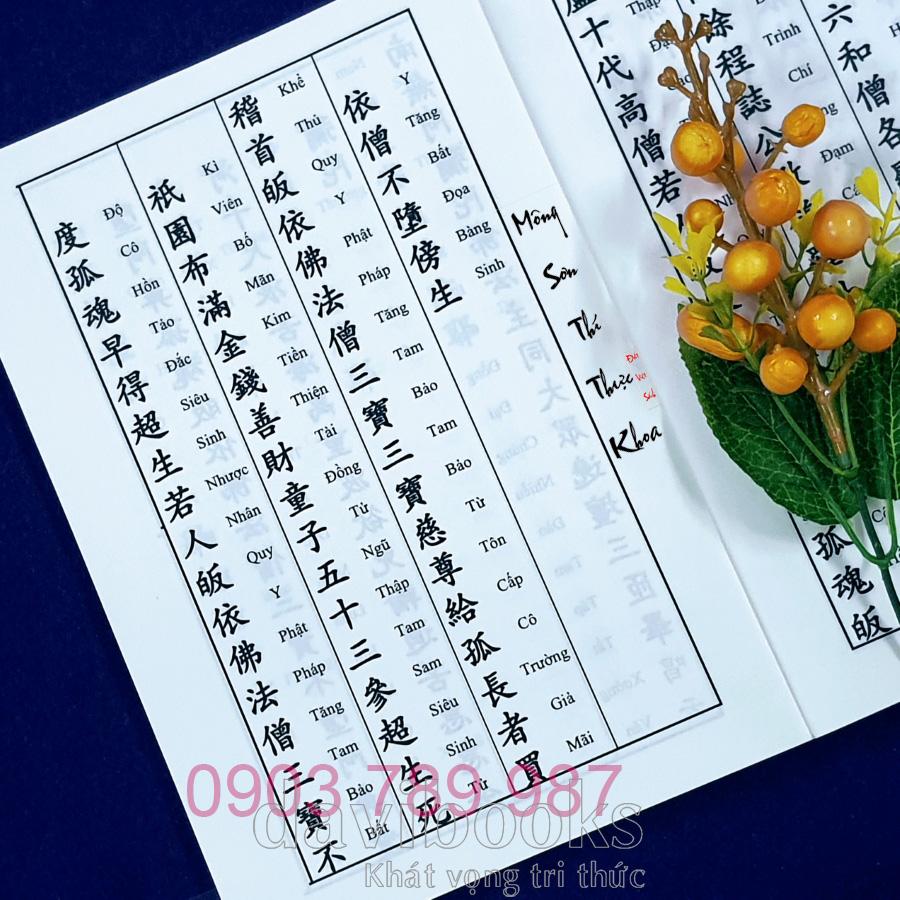 六和僧各
程誌公
Trình Chí
十代高僧若
Thập
孤魂皈
Mông Sơn Thí Thực Khoa
依僧不墮傍生
Y Tăng Bất Đọa Bàng Sinh
稽首皈依佛法僧三寶三寶慈尊給孤長者買
Khể Thủ Quy Y Phật Pháp Tăng Tam Bảo Tam Bảo Từ Tôn Cấp Cô Trưởng Giả Mãi
祇園布滿金錢善財童子五十三參超生死
Kì Viên Bố Mãn Kim Tiền Thiện Tài Đồng Tử Ngũ Thập Tam Sam Siêu Sinh Tử
度孤魂早得超生若人皈依佛法僧三寶不
Độ Cô Hồn Tảo Đắc Siêu Sinh Nhược Nhân Quy Y Phật Pháp Tăng Tam Bảo Bất
0903 789 987
davibooks
Khát vọng tri thức